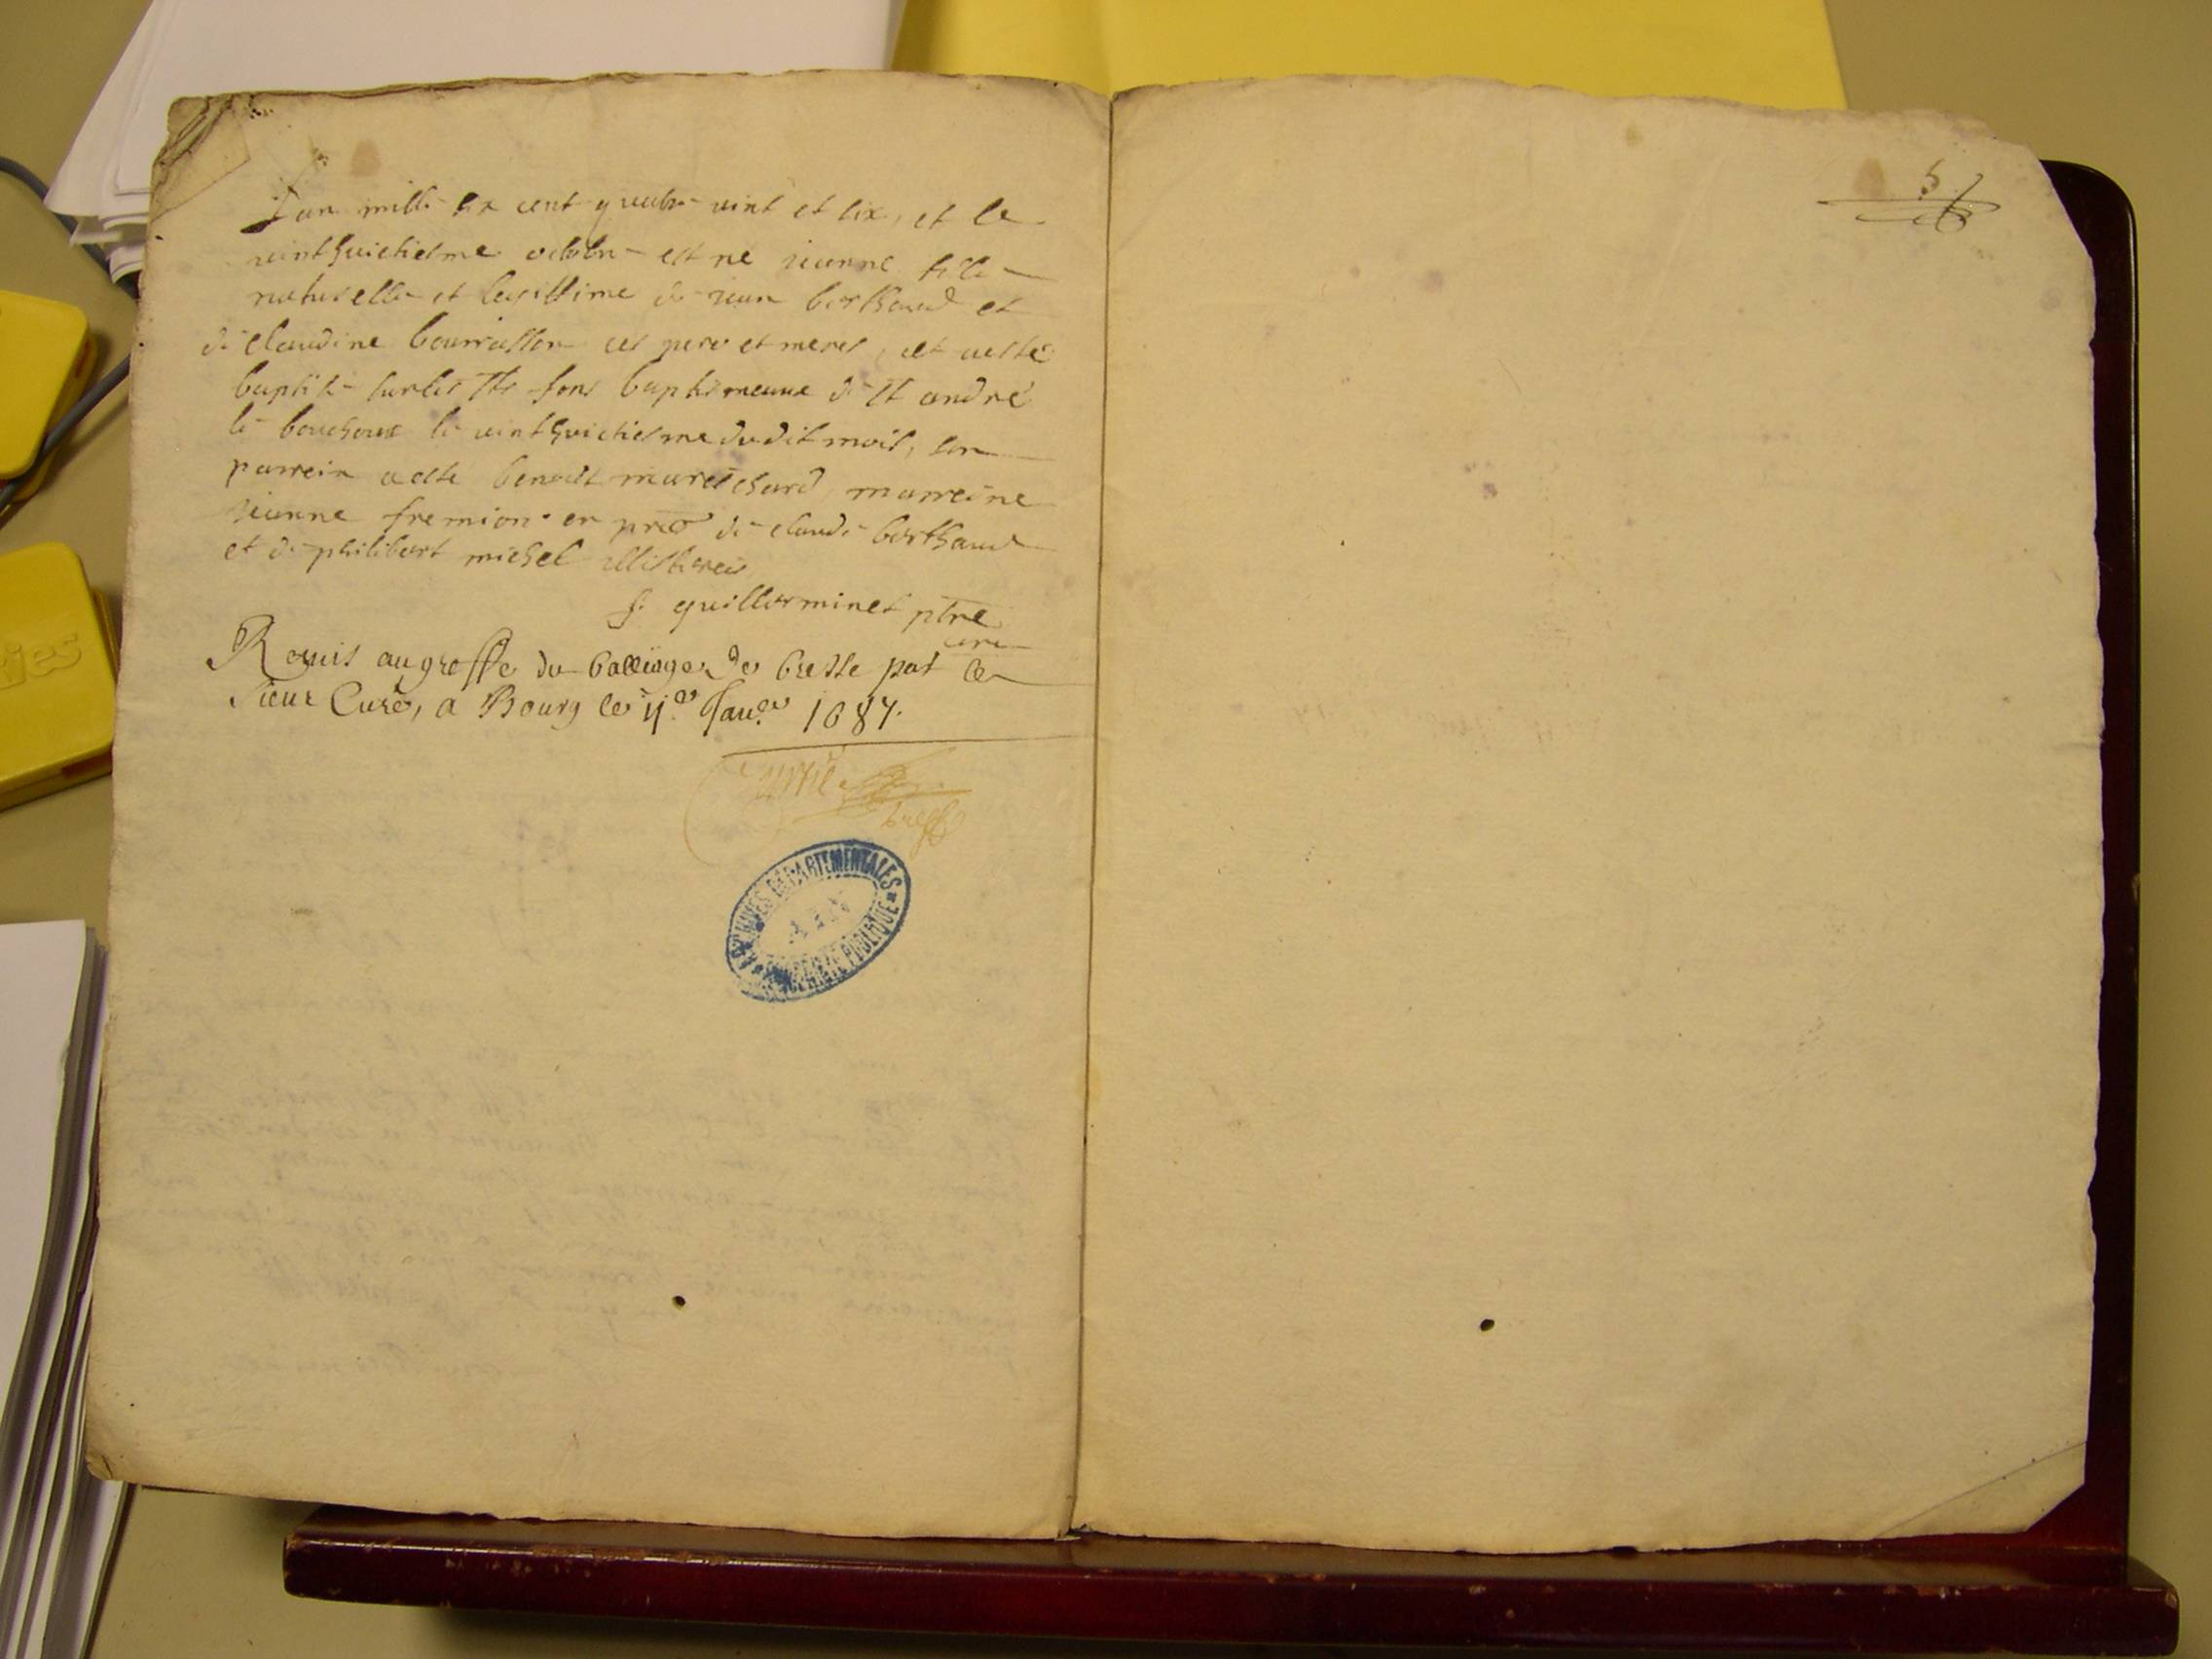 5
L'an mille six cent quatre vint et six, et le
vinthuictiesme octobre est ne jeanne fille
naturelle et legittime de jean berthaud et
de claudine bourrasson ces pere et meres, et a esté
baptisé sur les sts fons baptismeaux de st andré
le bouchoux le vinthuictiesme dudit mois, son
parrein a esté benoist mareschard, marreine
jeanne fremion en prēs de claude berthaud
et de philibert michel illitterés
f. guillerminet ptre
curé
Remis au greffe du balliage de bresse par le
sieur Curé, a Bourg le Janer 1687.
ARCHIVES DEPARTEMENTALES
AIN
PROPRIETE PUBLIQUE